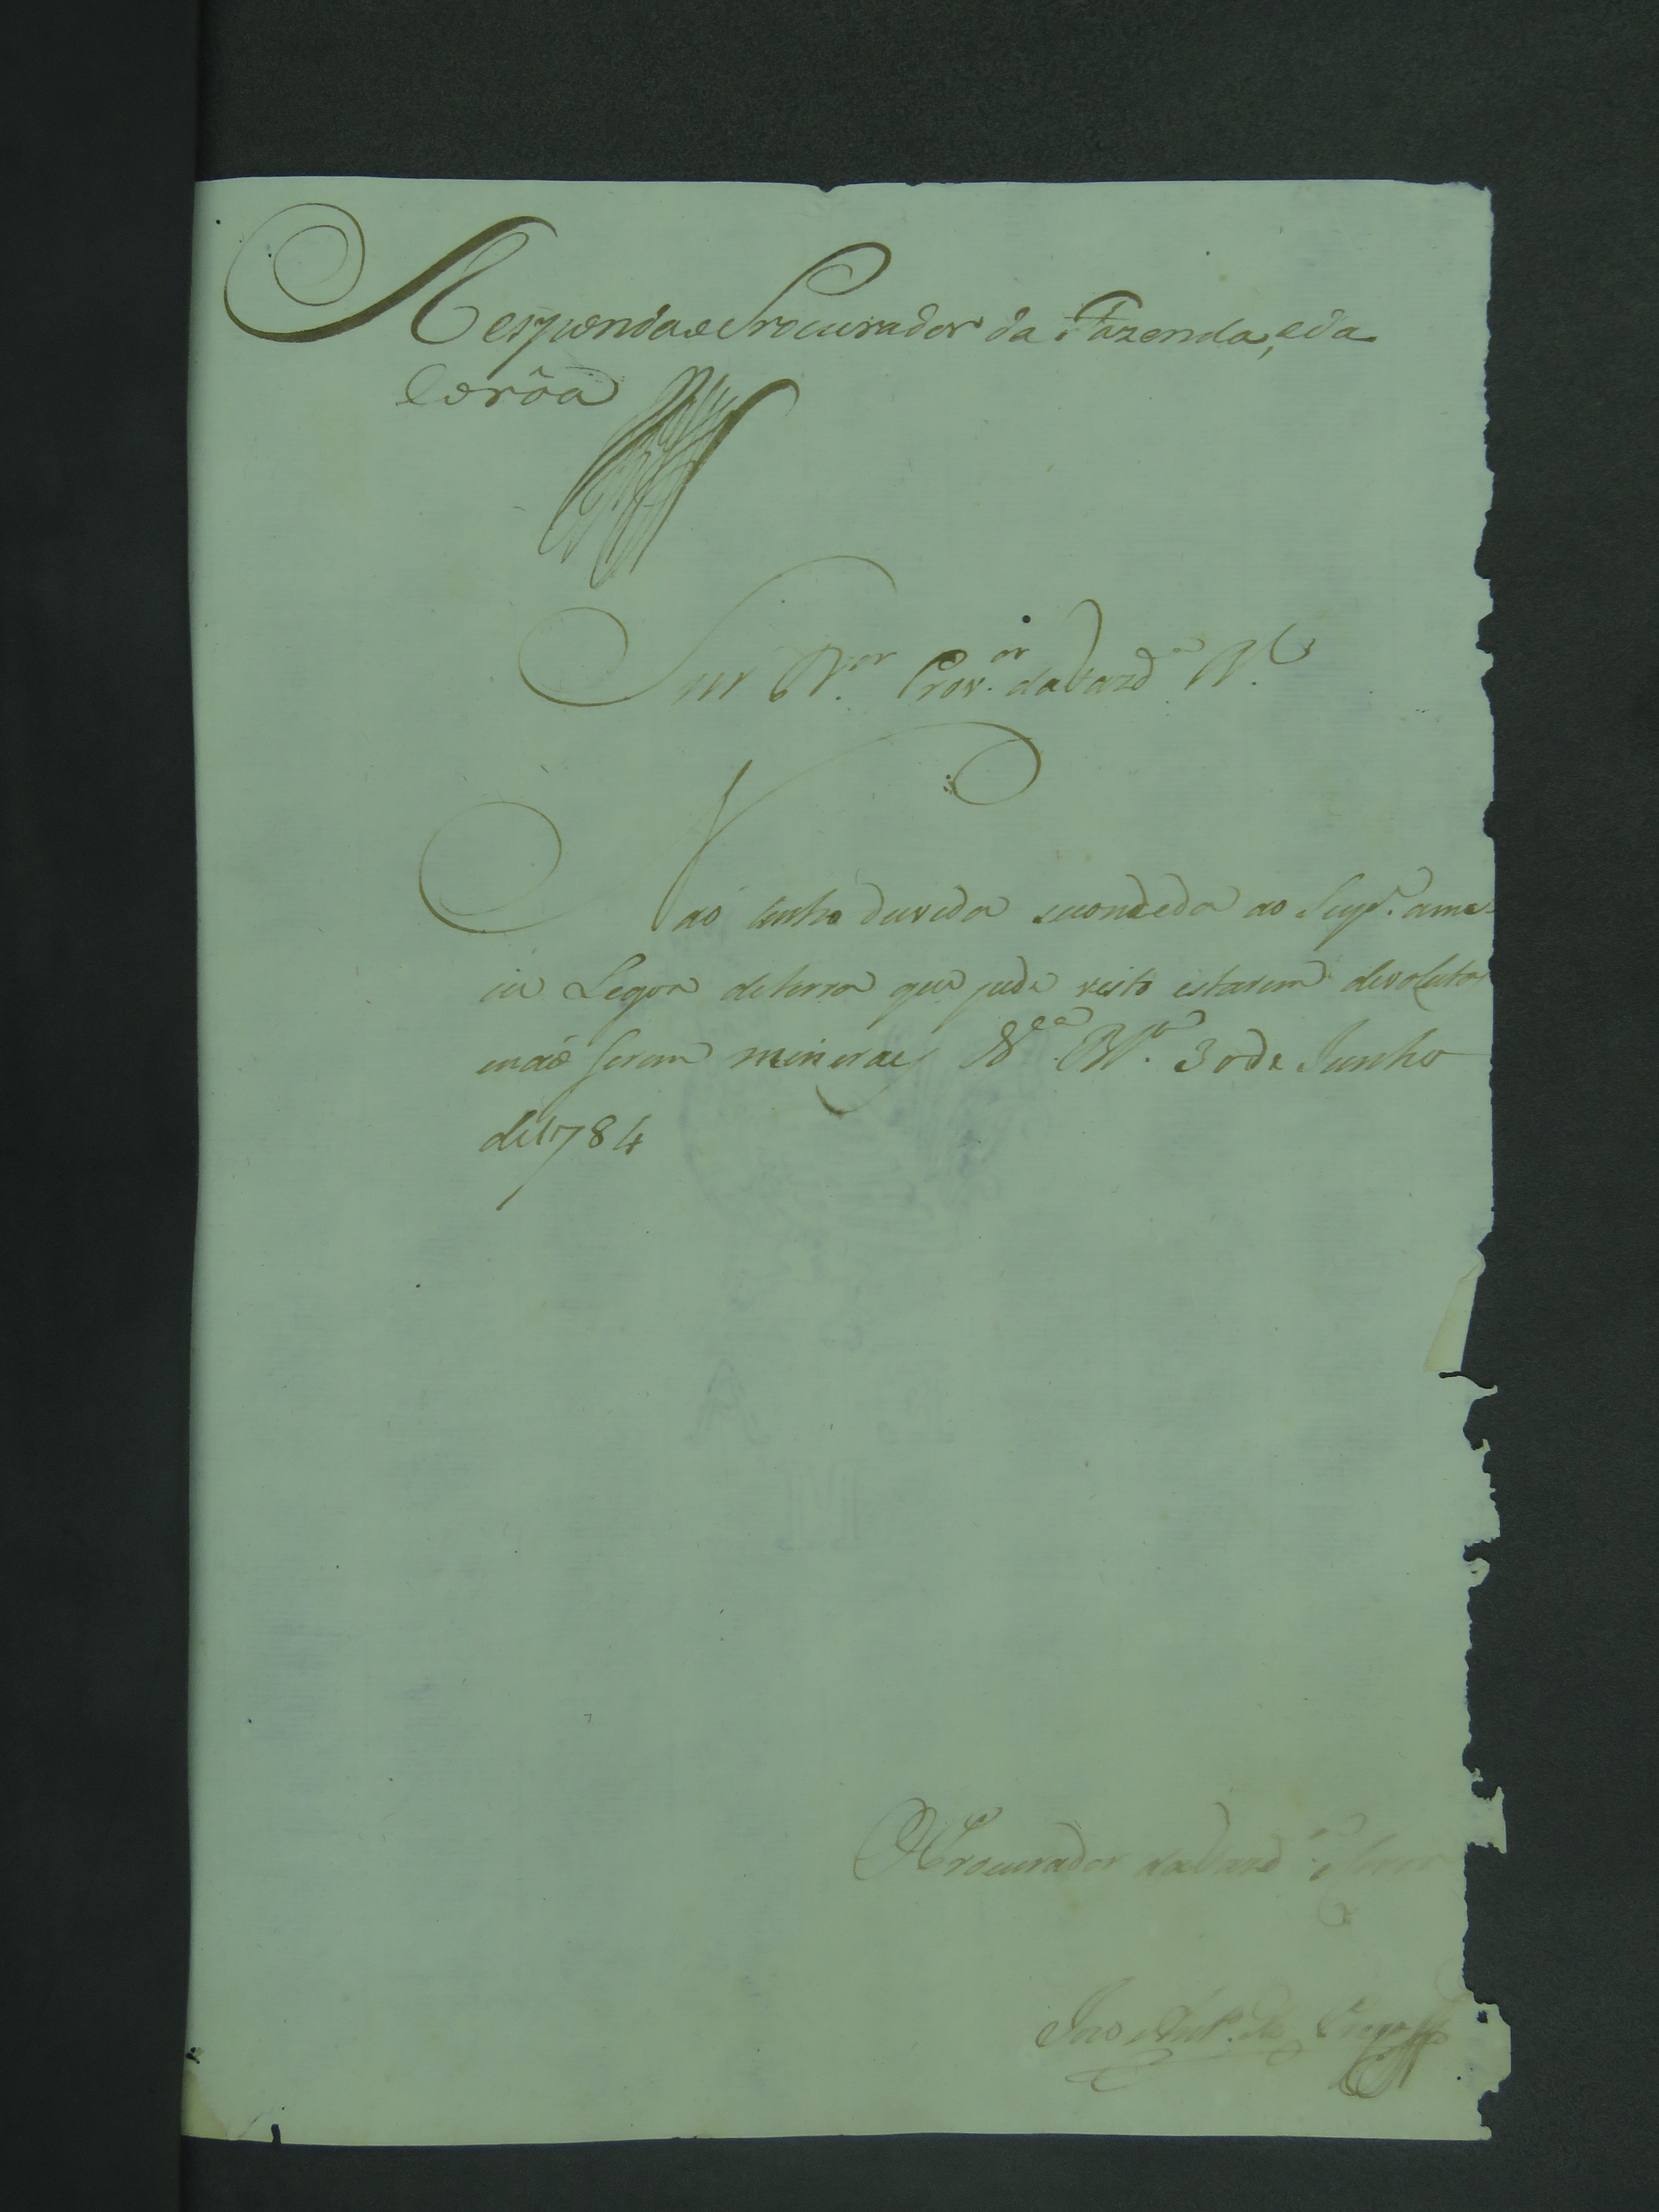 Respondao Procurador da Fazenda, eda
Corôa
Snr D.or Prov.or da Fazd.a R.l
Naó tenho duvida seconceda ao Sup.e ame
ia Legoa deterra que pede visto estarem devolutas
enaõ serem mineraes V.a B.a 30 de Junho
de 1784
O Procurador da Fazd.a